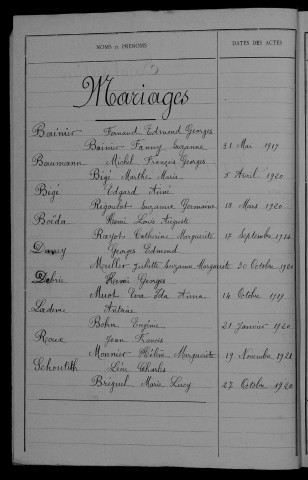 NOMS ET PRÉNOMS
DATES DES ACTES
Mariages
Bainier Fernand Edmond Georges
Bainier Fanny Suzanne 31 Mai 1917
Baumann Michel François Georges
Bégé Marthe Marie 8 Avril 1920
Bégé Edgard Aimé
Rigoulot Suzanne Germaine 18 Mars 1920
Boëda Henri Louis Auguste
Rayot Catherine Marguerite 17 Septembre
Georges Edmond
Muller Juliette Suzanne Marguerite 30 Octobre 1920
Georges
Muot Eva Ida Anna 14 Octobre 1919
Bohn Eugénie 21 Janvier 1920
Roux Jean Francis
Monnier Hélène Marguerite 19 Novembre
Léon Charles
Marie Lucy 27 Octobre 1920